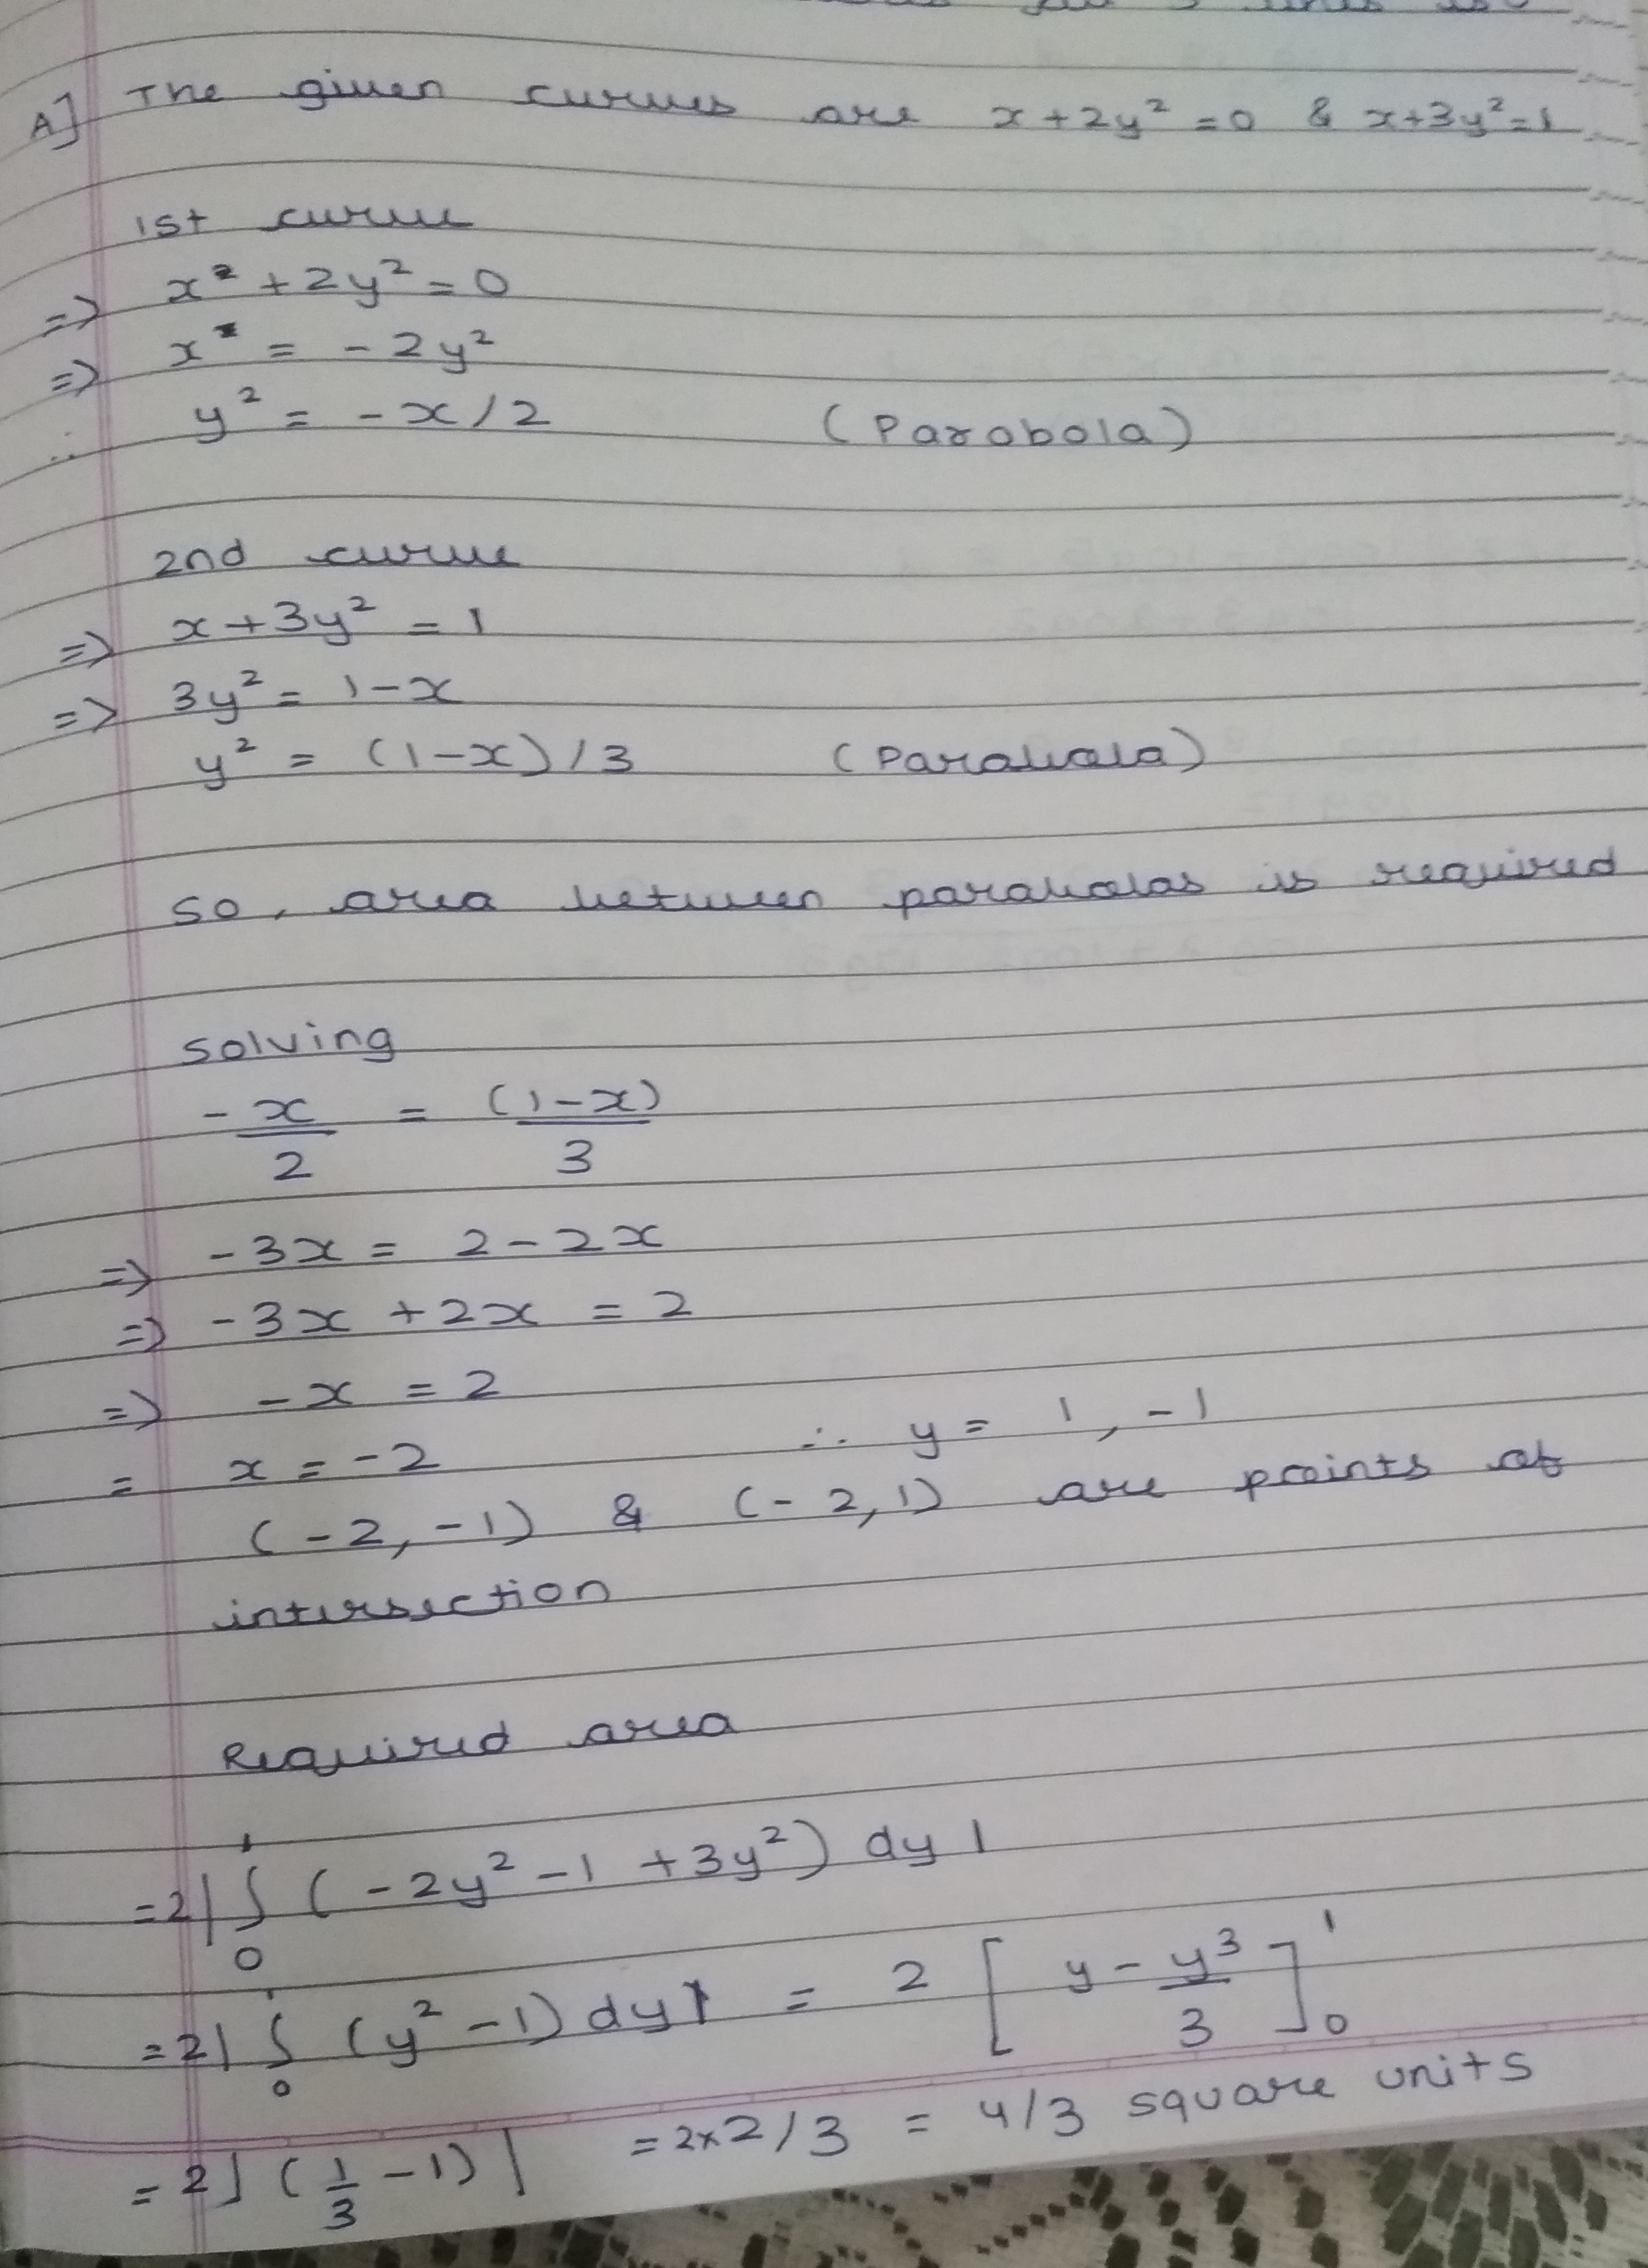 A] The given curves are x+2y²=0 & x+3y²=1
1st curve
=> x² +2y²=0
=> x² = -2y²
∴ y² = -x/2 (Parobola)
2nd curve
=> x+3y² =1
=> 3y²= 1-x
y² = (1-x)/3 (Parabola)
so, area between parabolas is required
solving
-x/2 = (1-x)/3
=> -3x = 2-2x
=> -3x +2x = 2
=> -x = 2
= x=-2 ∴ y= 1, -1
(-2,-1) & (-2,1) are points of
intersection
Required area
=2|∫₀¹ (-2y²-1 +3y²) dy|
=2|∫₀¹ (y²-1) dy| = 2 [y-y³/3]₀¹
=2|(1/3 -1)| =2×2/3 = 4/3 square units